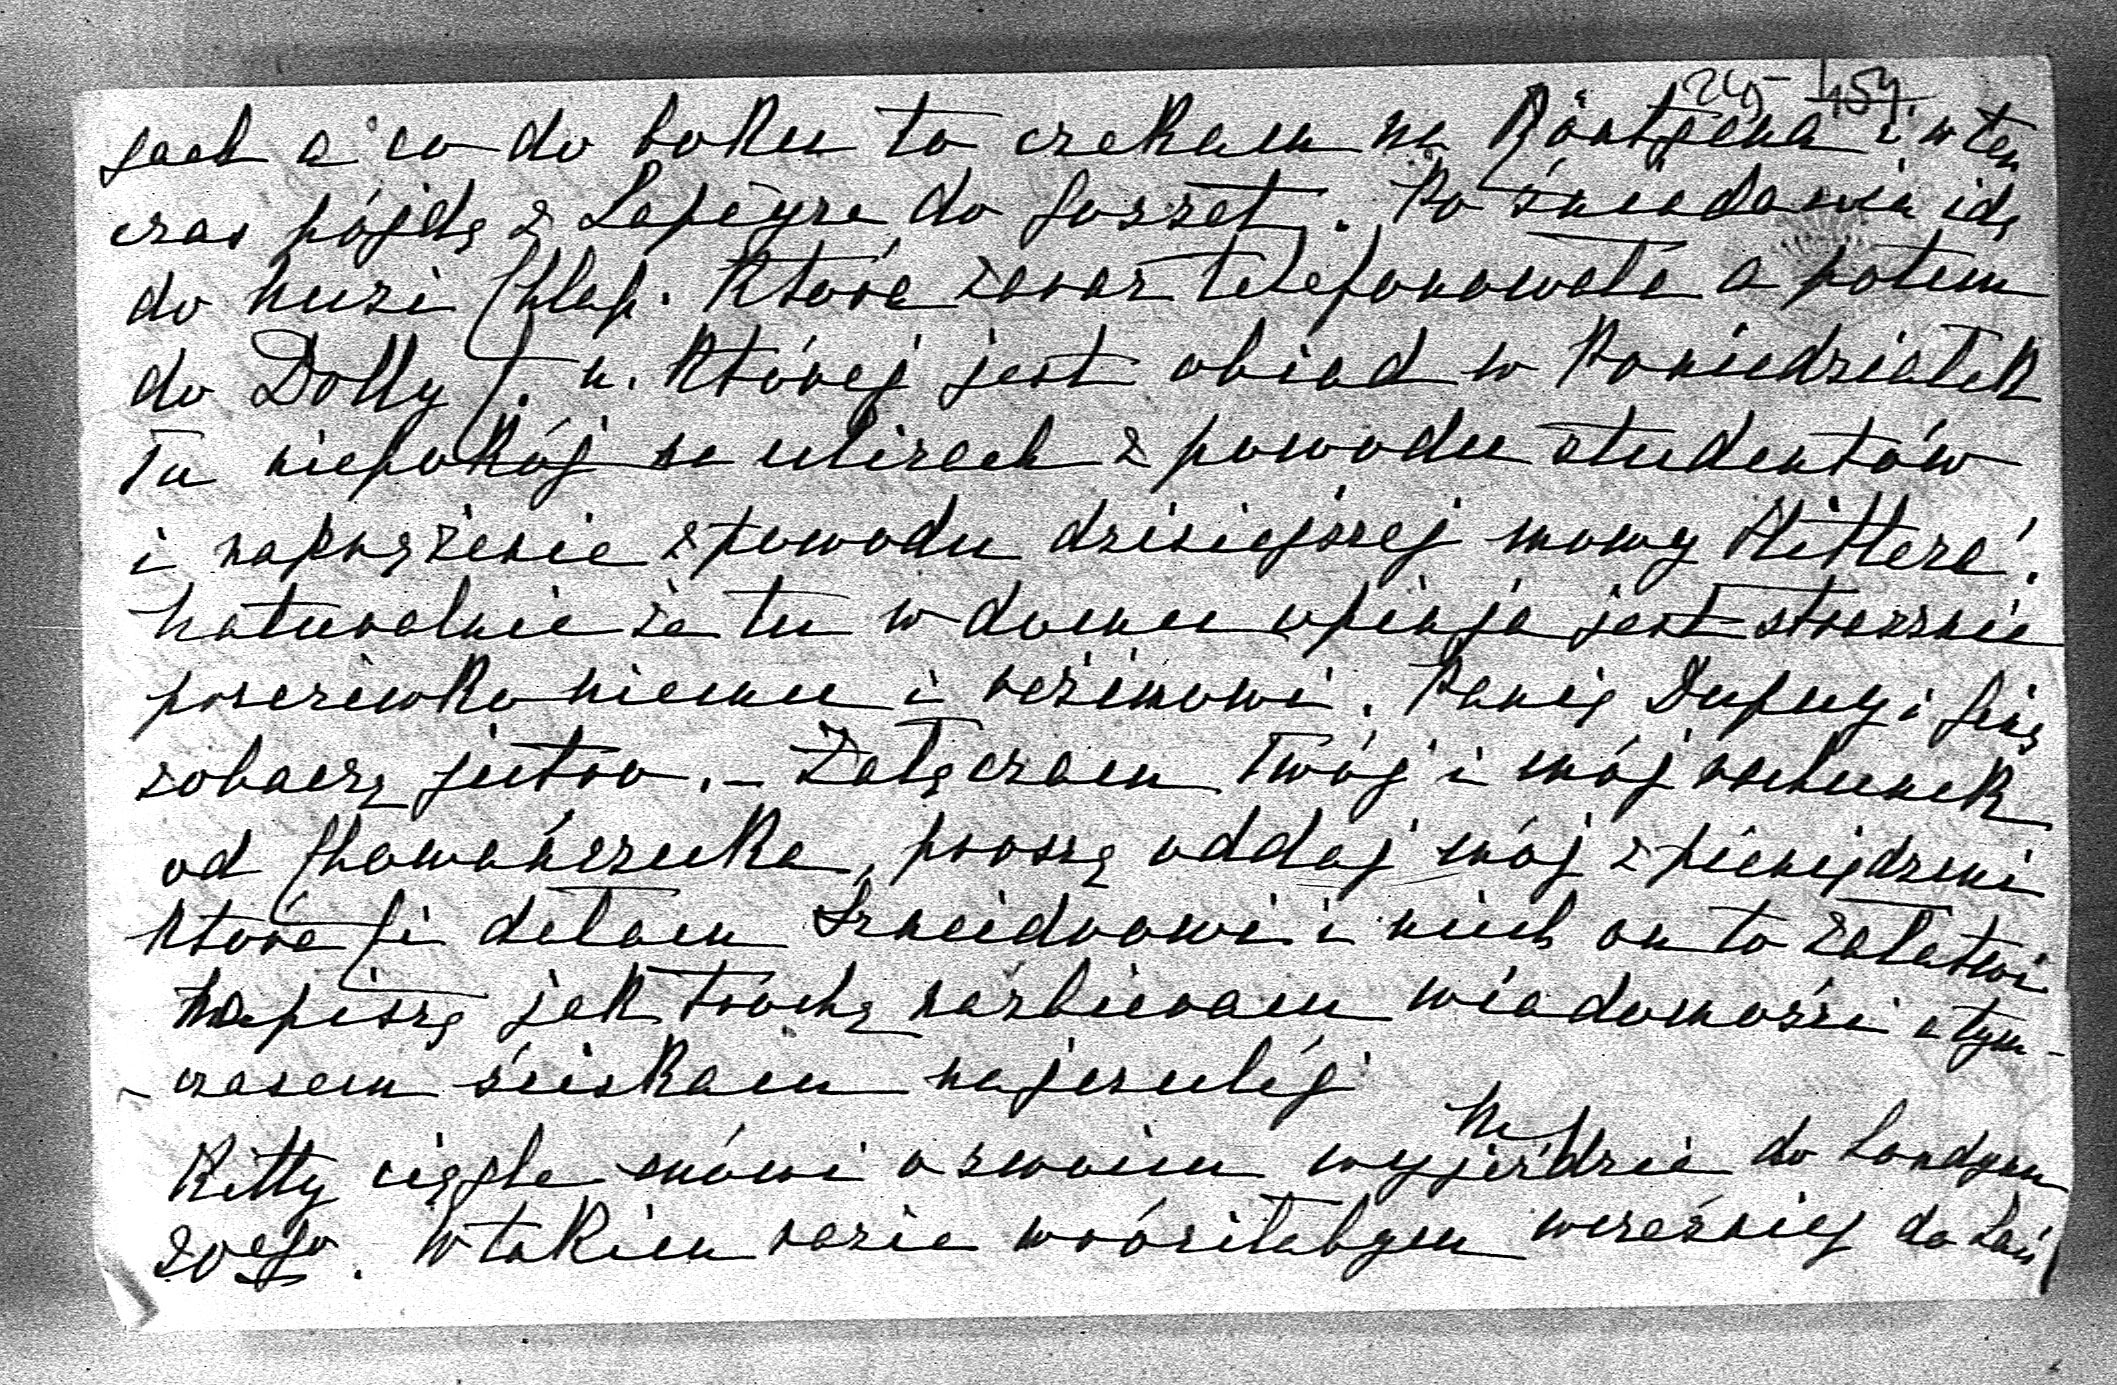 245 454
sach a co do boku to czekam na Röntgena i w ten
czas pójdę z Lapeyre do Gosset. Po śniadaniu idę
do Muzi Chłap. która zaraz telefonowała a potem
do Dolly J. u której jest obiad w Poniedziałek
Tu niepokój na ulicach z powodu studentów
i naprężenie z powodu dzisiejszej mowy Hitlera!
Naturalnie że tu w domu opinja jest strasznie
przeciwko niemu i reżimowi. Panią Dupuy i
zobaczę jutro. – Załączam Twój i mój rachunek
od Chowańczuka, proszę oddaj mój z pieniędzmi
które Ci dałam Szneidrowi i niech on to załatwi
Napiszę jak trochę nazbieram wiadomości a tym-
-czasem ściskam najczulej
M
Kitty ciągle mówi o swoim wyjeździe do Londynu
20ego. W takim razie wróciłabym wcześniej do Łań